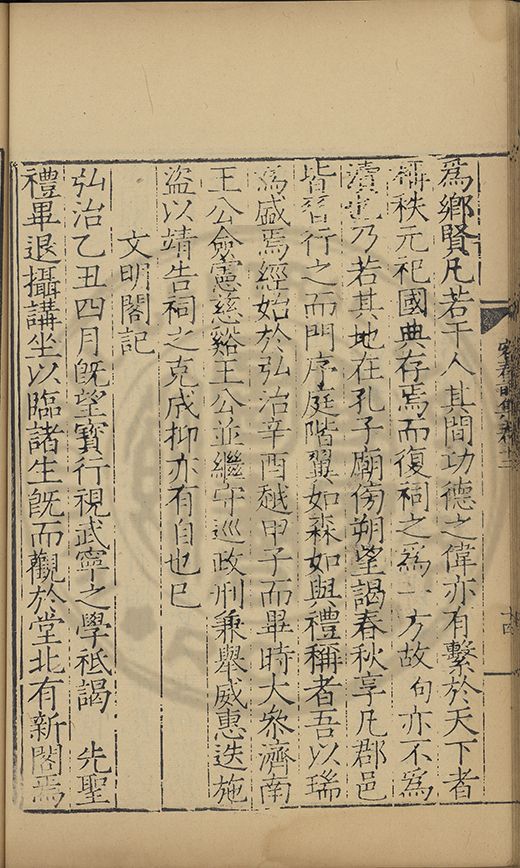 為鄉賢凡若干人其間功德之偉亦有繫於天下者
稱秩元祀國典存焉而復祠之為一方故句亦不為
瀆也乃若其地在孔子廟傍朔望謁春秋享凡郡邑
皆習行之而門序庭階翼如森如與禮稱者吾以瑞
為盛焉經始於弘治辛酉越甲子而畢時大參濟南
王公僉憲慈谿王公並繼守巡政刑兼舉威惠迭施
盜以靖告祠之克成抑亦有自也已
文明閣記
弘治乙丑四月既望寶行視武寧之學祗謁 先聖
禮畢退攝講坐以臨諸生既而觀於堂北有新閣焉
容春
十四